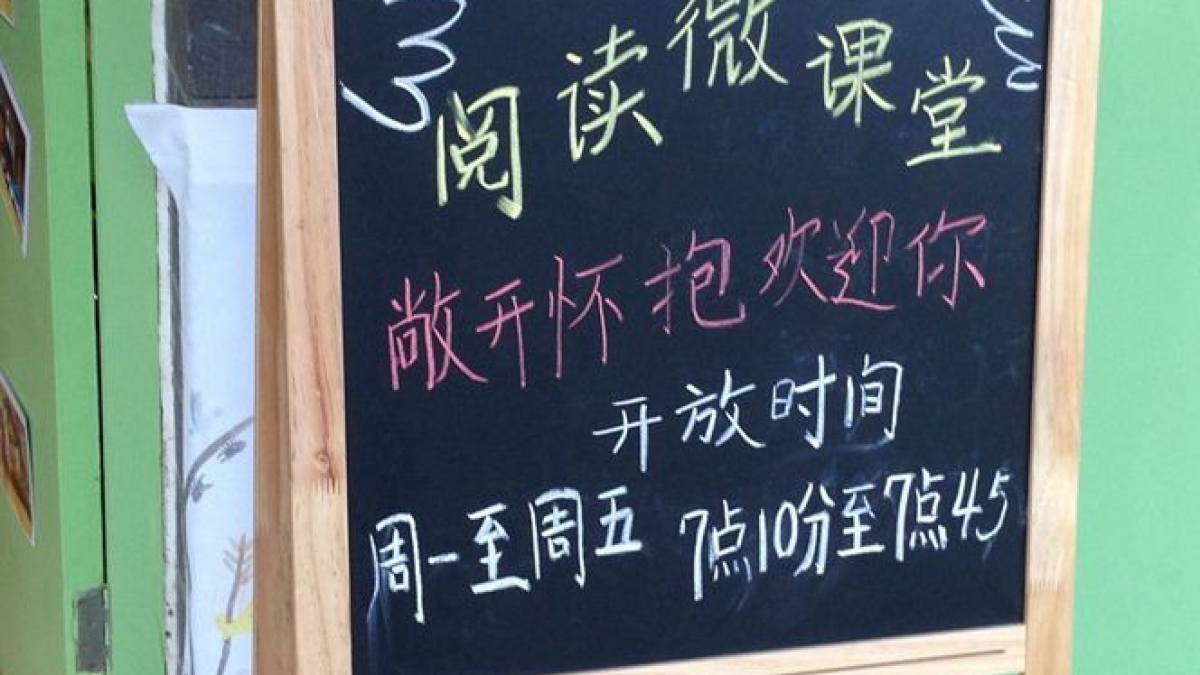 阅读微课堂
敞开怀抱欢迎你
开放时间
周一至周五 7点10分至7点45